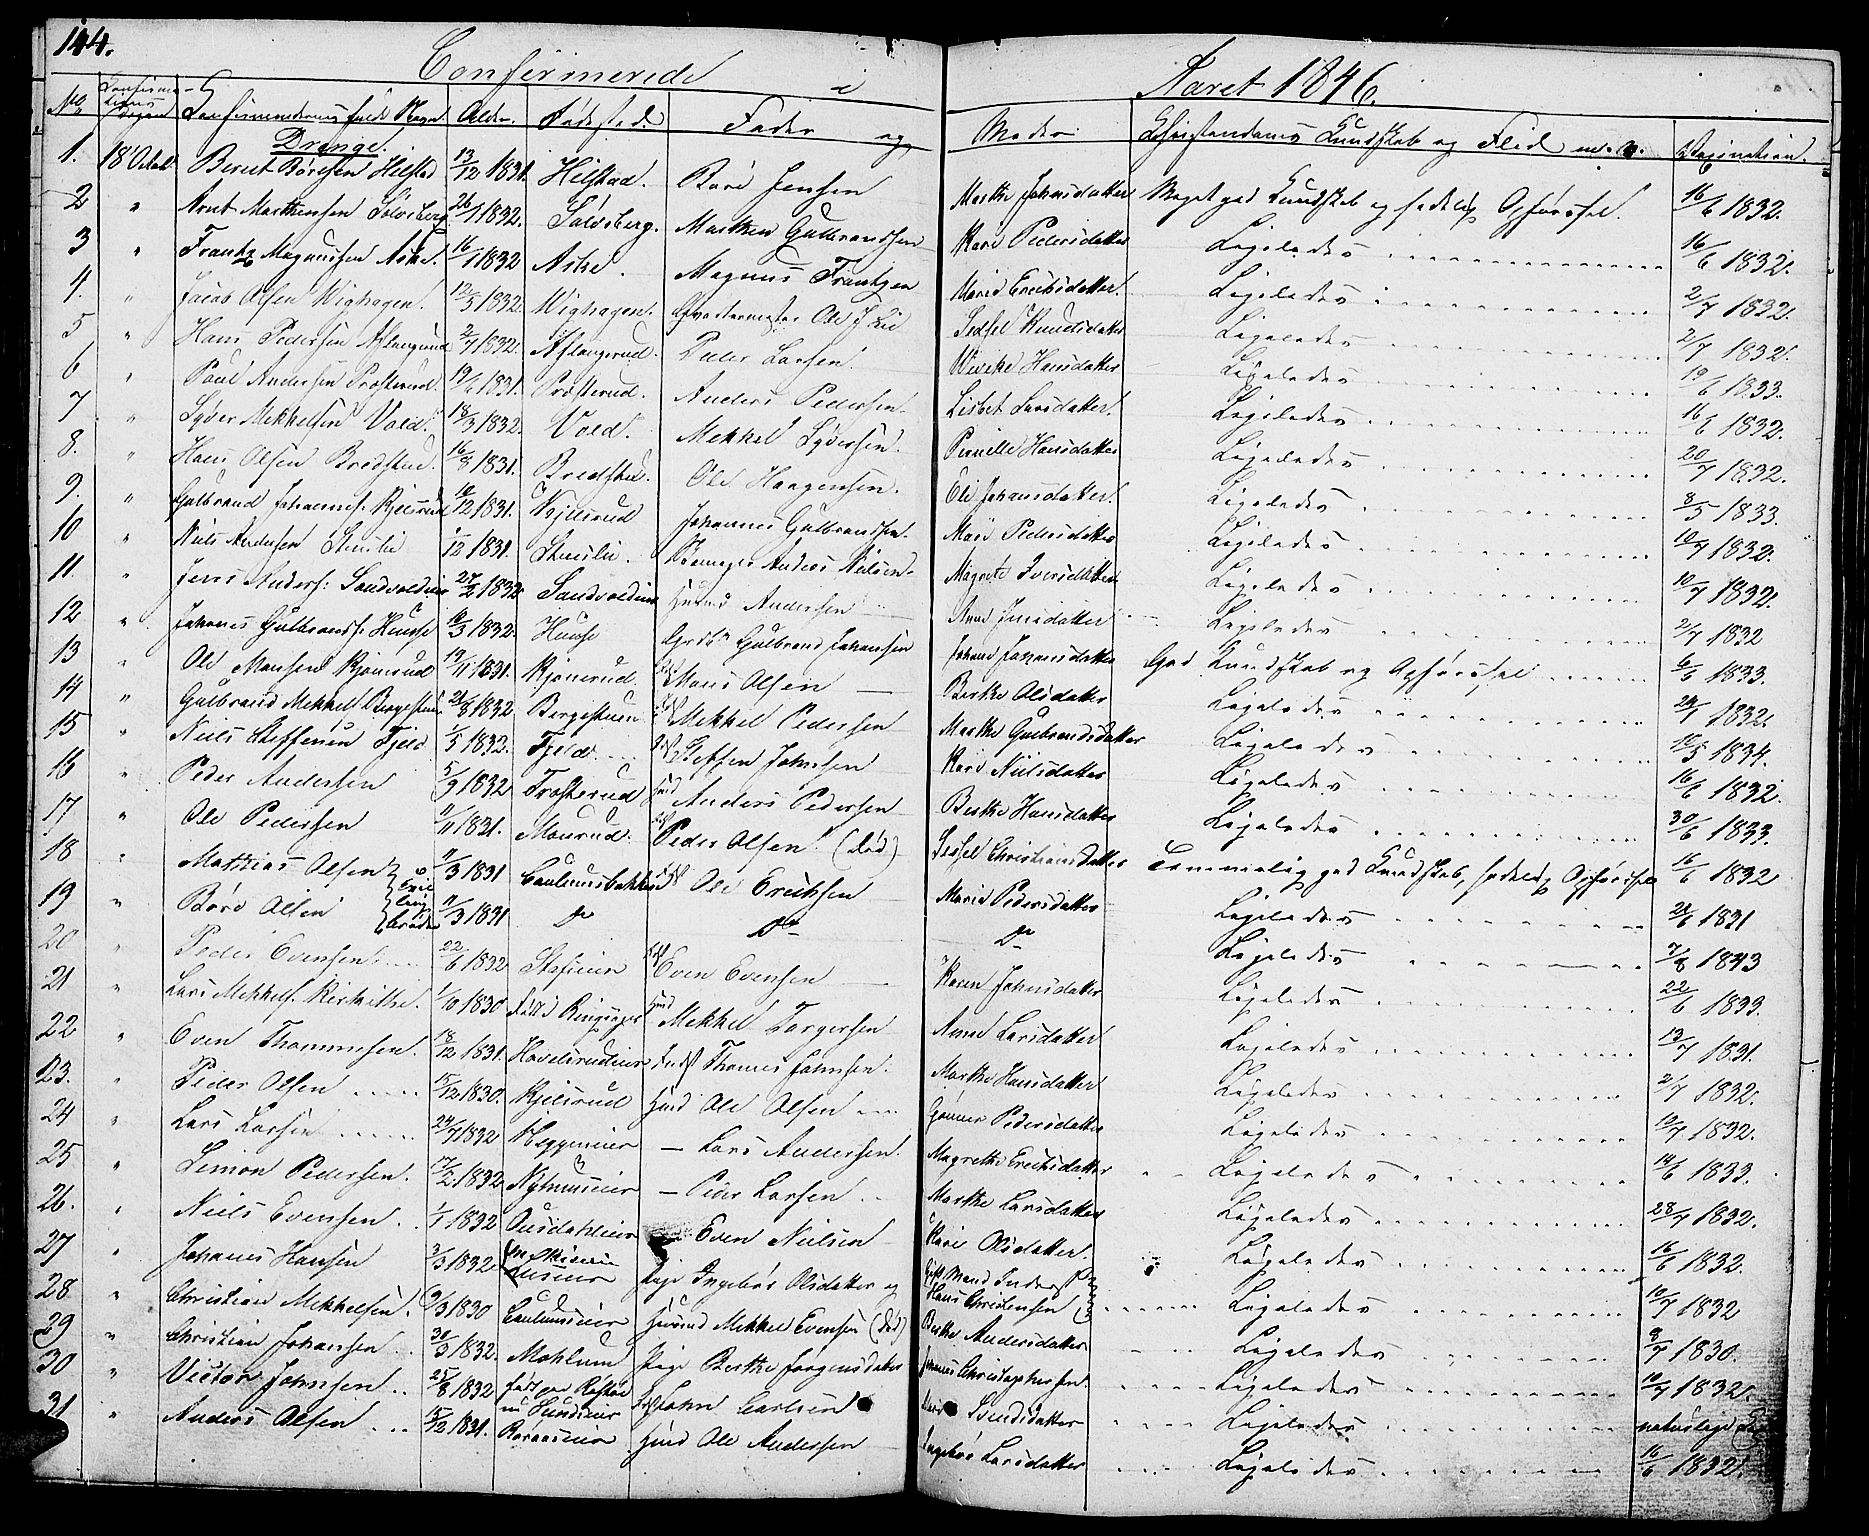 144.
Confirmerede i Aaret 1846.
No Confirmationsdagen Confirmandernes fulde Navn Alder. Fødested. Fader og Moder Christendoms Kundskab og Flid m. v. Vaxination.
Drenge.
1. 18 Octob. Bernt Børesen Hilstad 13/12 1831. Hilstad. Børe Jensen Marthe Johansdatter Meget god Kundskab og sædelig Opførsel. 16/6 1832.
2 " Arnt Marthinsen Solvsberg 26/1 1832. Solvsberg. Marthin Gulbrandsen Kari Pedersdatter Ligeledes 16/6 1832.
3 " Frantz Magnussen Aske. 16/1 1832 Aske. Magnus Frantzen Marie Erichsdatter. Ligeledes 2/7 1832.
4. " Jacob Olsen Wighagen. 12/5 1832. Wighagen. Qvartermester Ole J Lie Sidsel Knudsdatter Ligeledes 2/7 1832.
5 " Hans Pedersen Aslangrud 2/7 1832. Aslangrud. Peder Larsen. Wiveke Hansdatter Ligeledes 19/6 1833.
6 " Paul Andersen Præsterud. 19/6 1831. Præsterud. Anders Pedersen. Lisbet Larsdatter. Ligeledes 16/6 1832.
7 " Syver Mekkelsen Vold. 18/3 1832. Vold. Mekkel Syversen. Pernille Hansdatter Ligeledes 20/7 1832.
8. " Hans Olsen Bredstue. 16/8 1831. Bredstue. Ole Haagensen. Eli Johansdatter. Ligeledes 8/5 1833.
9. " Gulbrand Johannes. Kjelsrud 10/12 1831. Kjelsrud Johannes Gulbrandsen. Mari Pedersdatter Ligeledes 10/7 1832.
10 " Niels Andersen Stenslie /12 1831. Stenslie. Anders Nielsen. Magrete Iversdatter Ligeledes 10/7 1832.
11. " Jens Anders: Sandvoldeier 27/2 1832 Sandvoldeier Huusmd Andersen Anne Jensdatter Ligeledes 2/7 1832
12 " Johanes Gulbrands. Huuse 10/3 1832. Huuse Grdbr Gulbrand Johansen Johane Johansdatter God Kundskab og Opførsel 6/6 1833.
13 " Ole Mansen Kjønerud 19/11 1831. Kjønerud. Mans Olsen Berthe Olsdatter Ligeledes 24/7 1832.
14 " Gulbrand Mekkel. Bergestuen. 21/8 1832 Bergestuen Mekkel Pedersen Marthe Gulbrandsdatter Ligeledes 10/5 1834.
15 " Niels Steffensen Fjeld 1/5 1832. Fjeld. Steffen Johnsen Kari Nielsdatter Ligeledes 16/6 1832.
16 " Peder Andersen 5/9 1832 Trosterud Hmd Anders Pedersen Berthe Hansdatter Ligeledes 30/6 1833.
17 " Ole Pedersen 11/11 1831. Maurud. Peder Olsen. (død) Sidsel Christiansdatter Temmelig god Kundskab, sædelig Opførsel 16/6 1832
18 " Mathias Olsen 11/3 1831 Caulumsbakken Ole Erichsen Marie Pedersdatter Ligeledes 24/6 1831
19 " Børe Olsen Tvillingbrødre 11/3 1831 do do do Ligeledes 7/8 1843
20 " Peder Evensen. 22/6 1832 Even Evensen Karen Johnsdatter Ligeledes 22/6 1833.
21 " Lars Mekkels. 1/10 1830 født i Ringsager Hmd Mekkel Torgersen Anne Larsdatter Ligeledes 13/7 1831.
22 " Even Thommesen. 18/12 1831. Hovelsrudeier Indst Thomes Johnsen. Marthe Hansdatter Ligeledes 2/7 1832.
23. " Peder Olsen 15/12 1830. Kjelsrud Hmd Ole Olsen Gunner Pedersdatter Ligeledes 13/7 1832.
24 " Lars Larsen 24/7 1832 Heggeneier — Lars Andersen. Magrethe Erichsdatter Ligeledes 14/6 1833.
25 " Simon Pedersen. 17/2 1832 — Peder Larsen Marthe Larsdatter Ligeledes 28/7 1832.
26. " Niels Evensen. 1/1 1832 Ousdahleier Even Nielsen Kari Olsdatter. Ligeledes 16/6 1832.
27 " Johanes Hansen 3/3 1832 Pige Ingebor Olsdatter og gift Mand Hans Christensen Ligeledes 10/7 1832
28 " Christian Mekkelsen. 9/3 1830 Caulumseier Huusmd Mekkel Evensen (død) Berthe Andersdatter Ligeledes 8/7 1830.
29 " Christian Johansen 30/3 1832. Mæhlum Pige Berthe Jørgensdatter Johannes Christophersen. Ligeledes 10/7 1832.
30 " Victor Johnsen 25/8 1832 født paa nu Sundseier John Carlsen Svendsdatter Ligeledes naturlige
31 " Anders Olsen 15/12 1831. Hmd Ole Andersen Ingebor Larsdatter Ligeledes 16/6 1832.